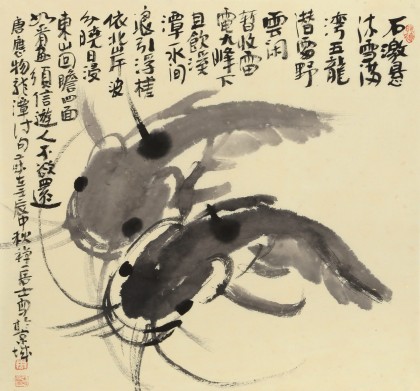 石激悬
流雪满
湾五龙
潜處野
雲闲
暫收雷
電九峰下
且飲溪
潭一水间
浪引浮槎
依北岸波
分曉日浸
東山回瞻四面
如看畫須信遊人不欲還
唐應物龍潭诗句 歲在壬辰中秋 京城